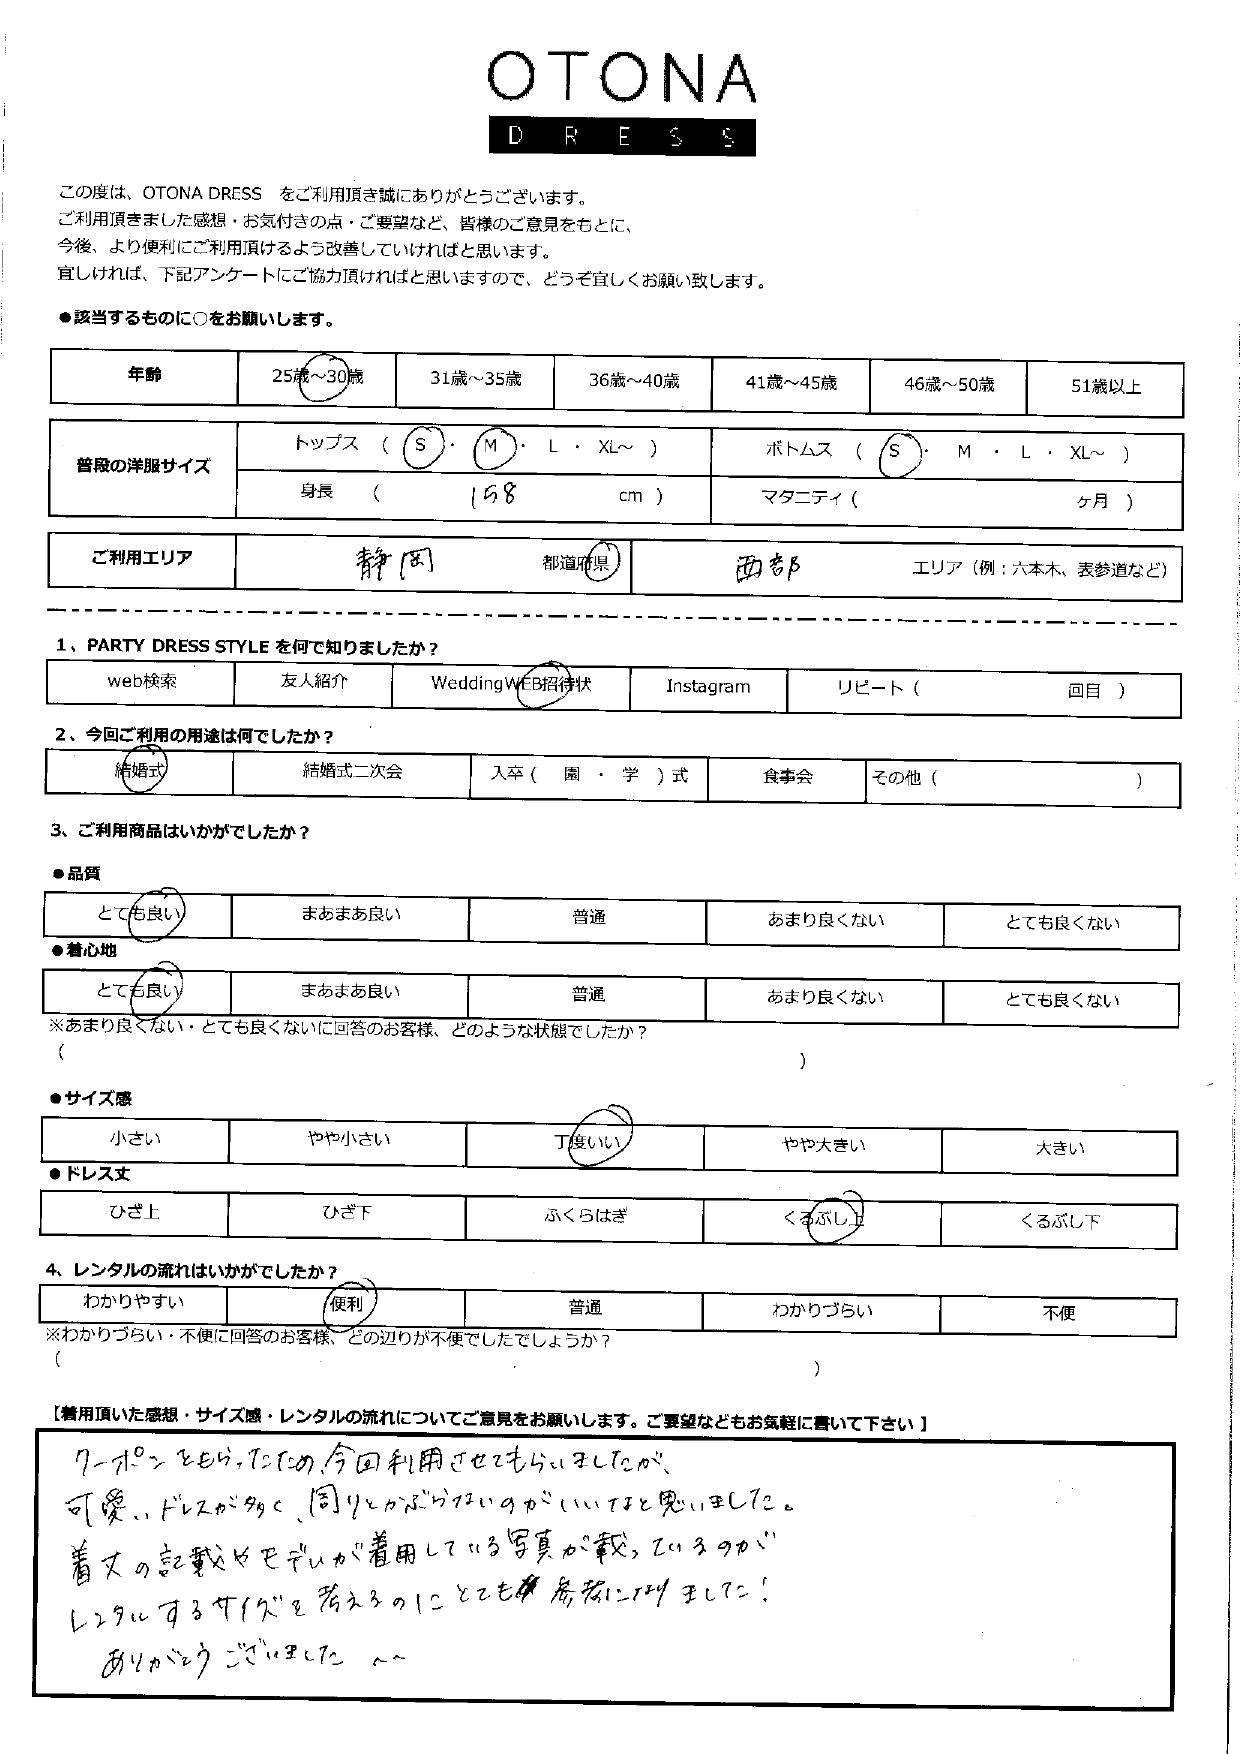 OTONA
DRESS
この度は、OTONA DRESS をご利用頂き誠にありがとうございます。
ご利用頂きました感想・お気付きの点・ご要望など、皆様のご意見をもとに、
今後、より便利にご利用頂けるよう改善していければと思います。
宜しければ、下記アンケートにご協力頂ければと思いますので、どうぞ宜しくお願い致します。
●該当するものに○をお願いします。
年齢 25歳～30歳 31歳～35歳 36歳～40歳 41歳～45歳 46歳～50歳 51歳以上
普段の洋服サイズ トップス ( S ・ M ・ L ・ XL～ ) ボトムス ( S ・ M ・ L ・ XL～ )
身長 ( 158 cm ) マタニティ ( ヶ月 )
ご利用エリア 静岡 都道府県 西部 エリア（例：六本木、表参道など）
1、PARTY DRESS STYLE を何で知りましたか？
web検索 友人紹介 WeddingWEB招待状 Instagram リピート ( 回目 )
2、今回ご利用の用途は何でしたか？
結婚式 結婚式二次会 入卒 ( 園 ・ 学 ) 式 食事会 その他 ( )
3、ご利用商品はいかがでしたか？
●品質
とても良い まあまあ良い 普通 あまり良くない とても良くない
●着心地
とても良い まあまあ良い 普通 あまり良くない とても良くない
※あまり良くない・とても良くないに回答のお客様、どのような状態でしたか？
( )
●サイズ感
小さい やや小さい 丁度いい やや大きい 大きい
●ドレス丈
ひざ上 ひざ下 ふくらはぎ くるぶし上 くるぶし下
4、レンタルの流れはいかがでしたか？
わかりやすい 便利 普通 わかりづらい 不便
※わかりづらい・不便に回答のお客様、どの辺りが不便でしたでしょうか？
( )
【着用頂いた感想・サイズ感・レンタルの流れについてご意見をお願いします。ご要望などもお気軽に書いて下さい】
クーポンをもらったため、今回利用させてもらいましたが、
可愛いドレスが多く、周りとかぶらないのがいいなと思いました。
着丈の記載やモデルが着用している写真が載っているのが
レンタルするサイズを考えるのにとても参考になりました！
ありがとうございました～～